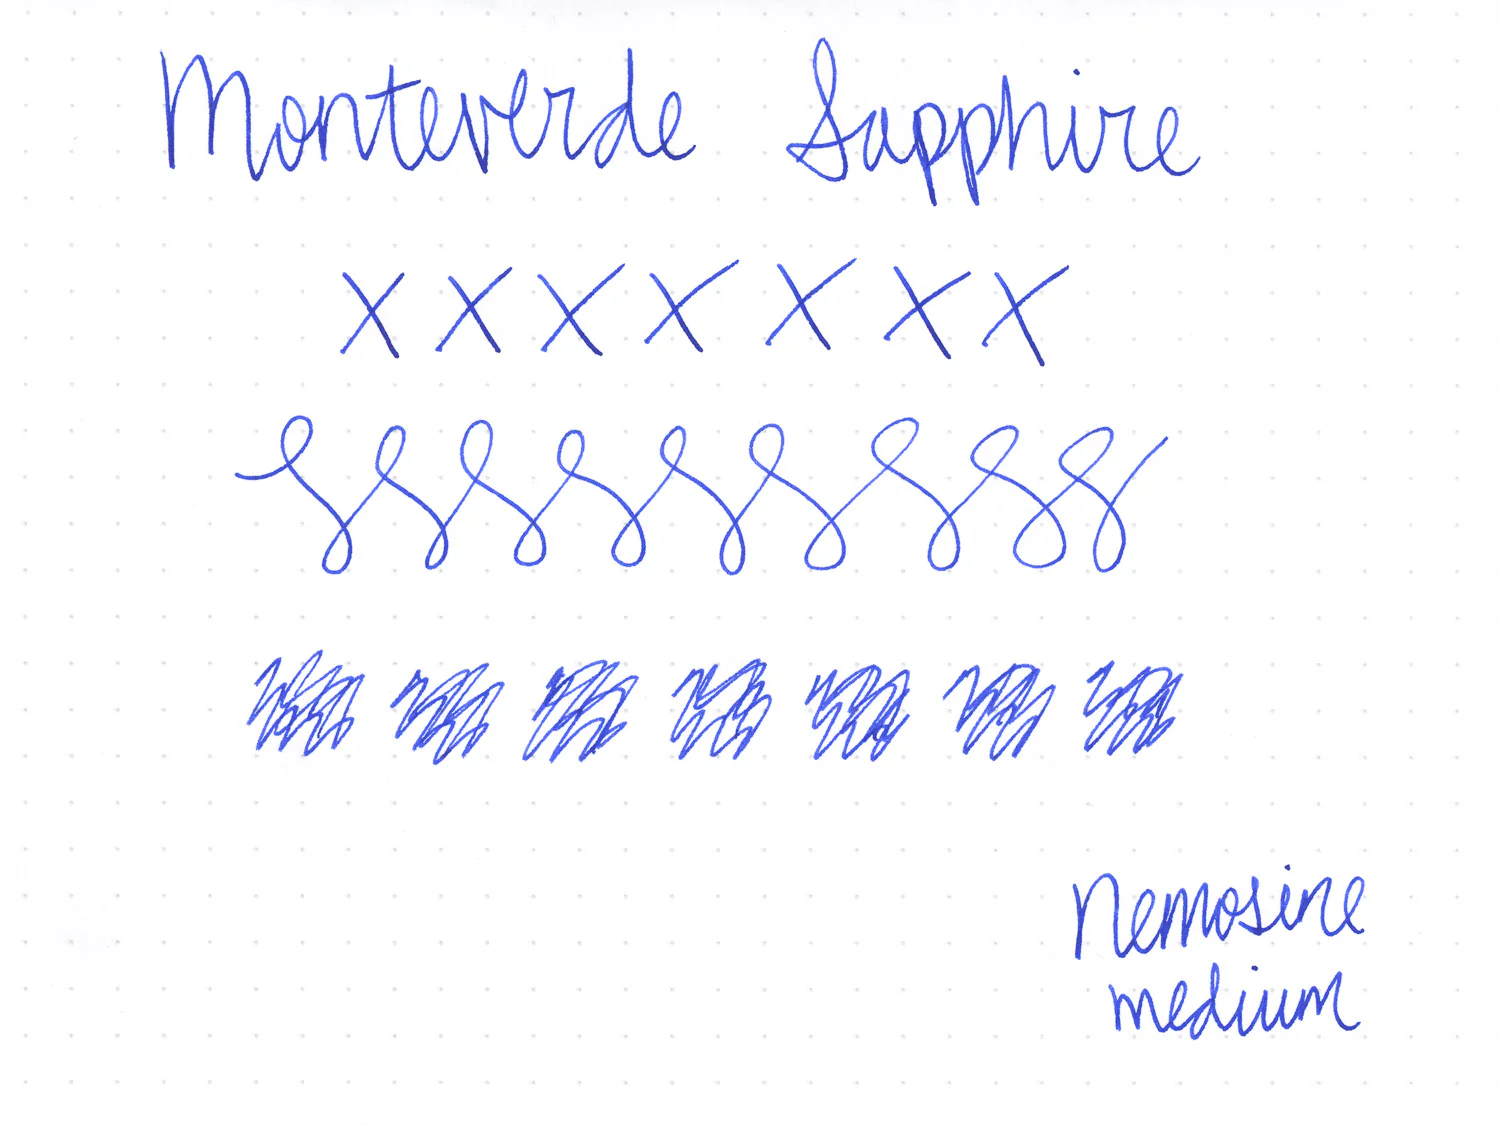 Monteverde Sapphire
X X X X X X X
Nemosine
medium